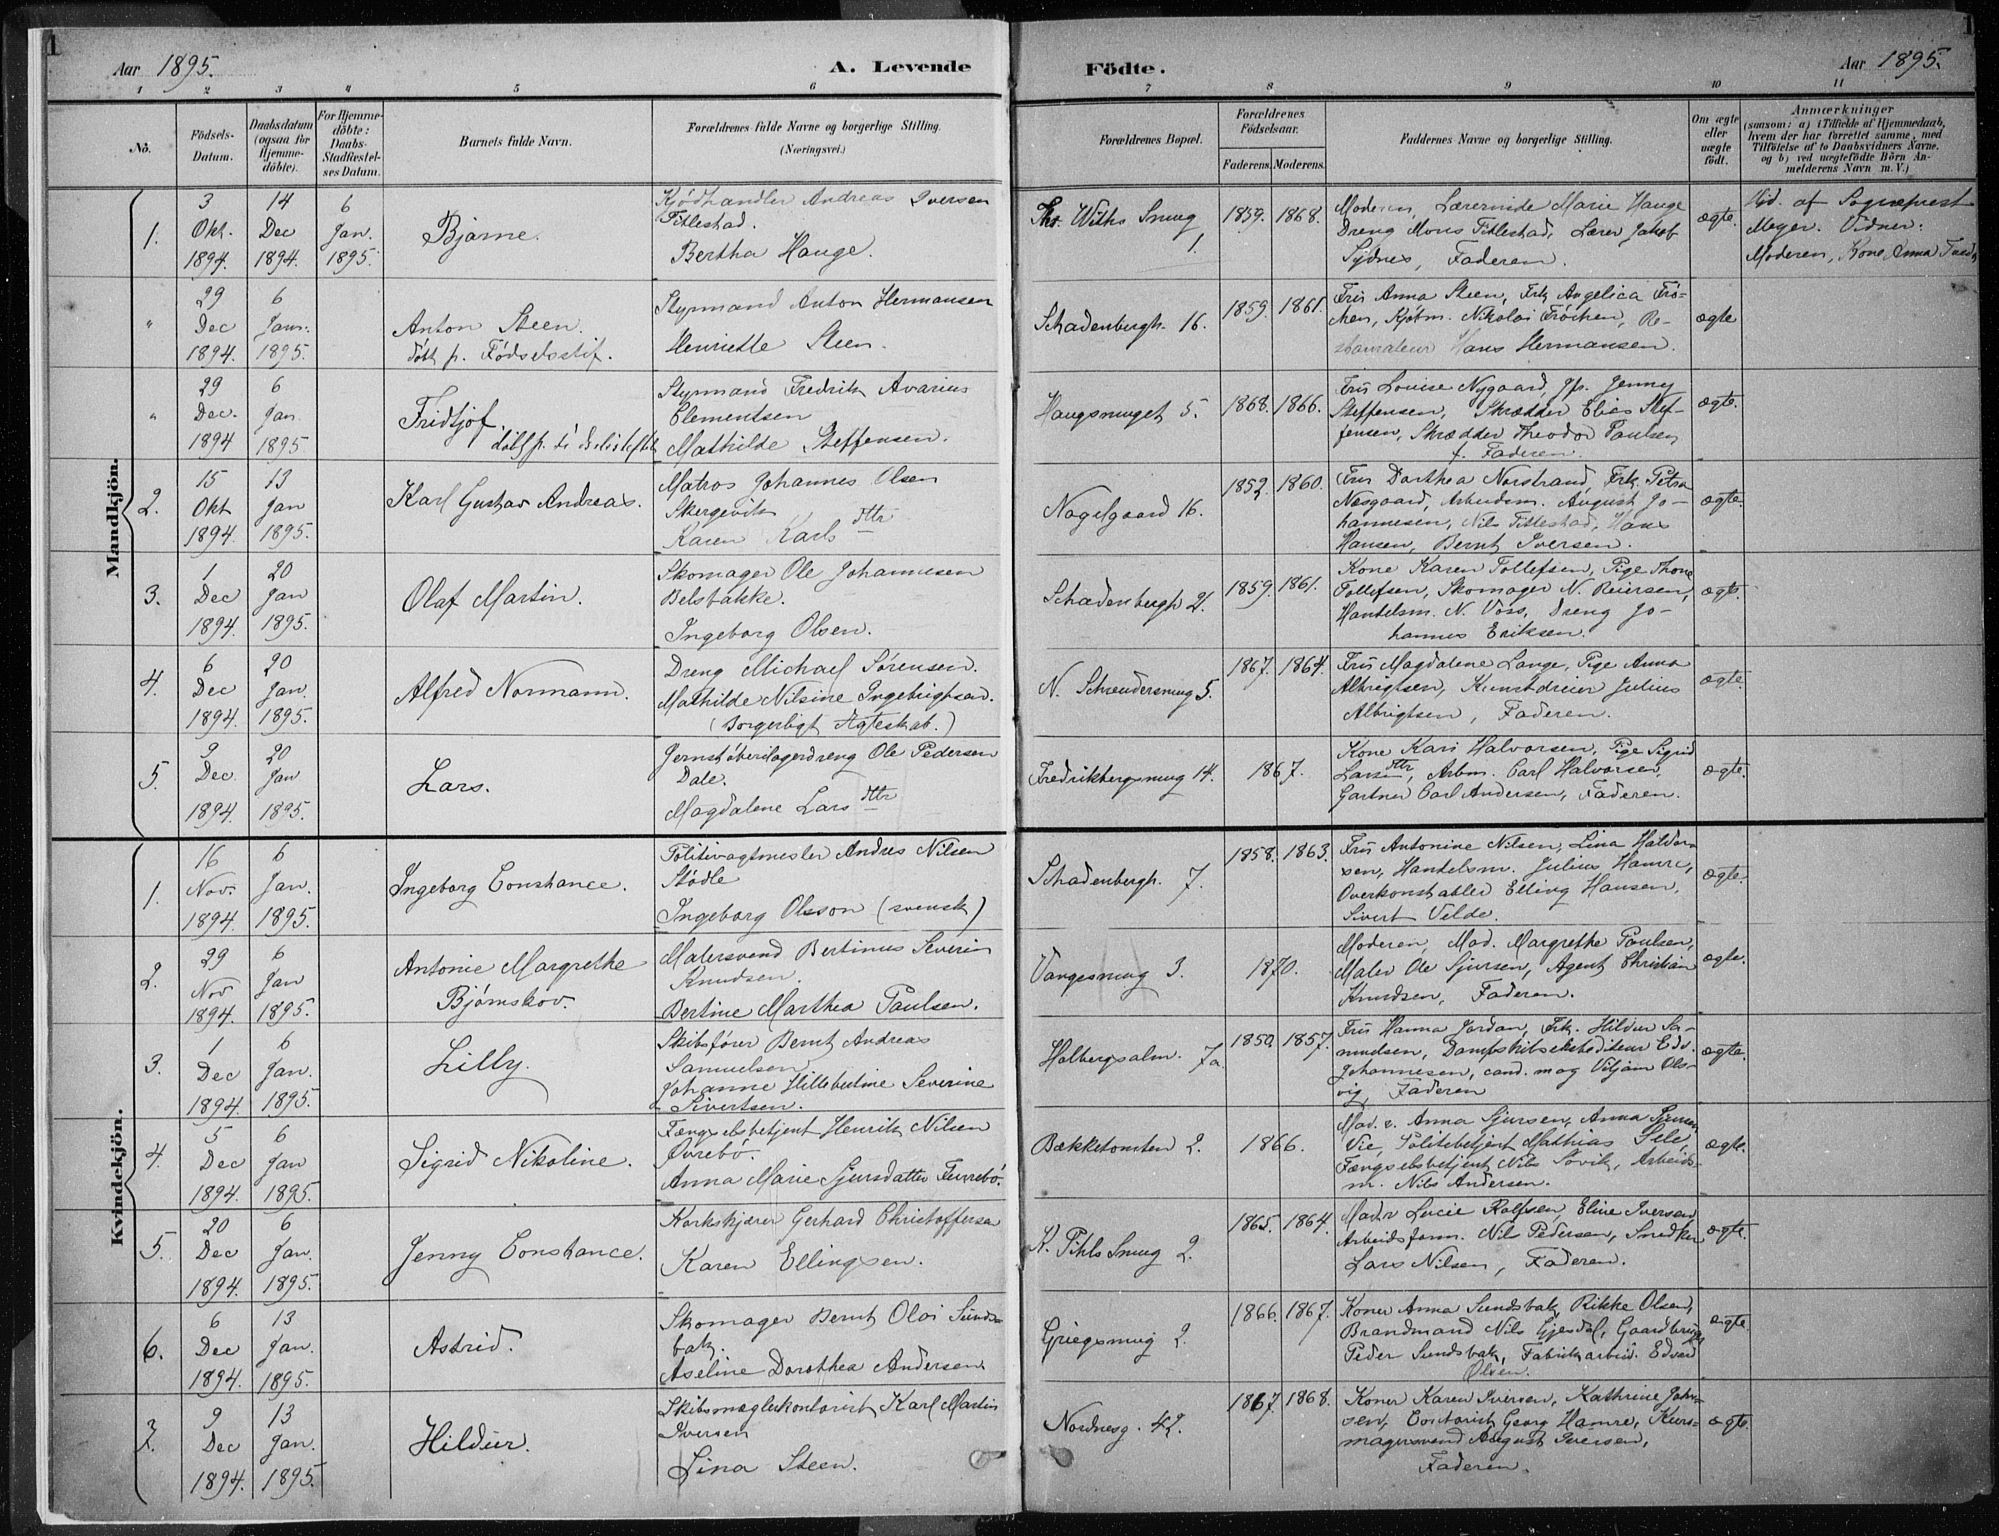 1
Aar 1895.
A. Levende
1 2 3 4 5 6
No.
Födsels-
Datum.
Daabsdatum
(ogsaa for
Hjemme-
döbte).
For Hjemme-
döbte:
Daabs-
Stadfæstel-
ses Datum.
Barnets fulde Navn.
Forældrenes fulde Navne og borgerlige Stilling.
(Næringsvei.)
Mandkjön.
1.
3
Okt.
1894.
14
Dec
1894.
6
Jan.
1895.
Bjarne.
Kjødhandler Andreas Iversen
Titlestad.
Bertha Hauge.
"
29
Dec
1894.
6
Jan.
1895.
Anton Steen.
døbt p. Fødselsstif.
Styrmand Anton Hermansen
Henriette Steen.
"
29
Dec.
1894
6
Jan.
1895
Fridtjof.
Styrmand Fredrik Avarius
Clementsen
Mathilde Steffensen.
2.
15
Okt
1894.
13
Jan
1895.
Karl Gustav Andreas.
Matros Johannes Olsen
Skergevik
Karen Karlsdttr
3.
1
Dec
1894.
20
Jan
1895.
Olaf Martin.
Skomager Ole Johannesen
Belsbakke.
Ingeborg Olsen.
4.
6
Dec
1894.
20
Jan.
1895.
Alfred Normann.
Dreng Michael Sørensen.
Mathilde Nilsine Ingebrigtsen.
(Borgerligt Ægteskab.)
5.
9
Dec.
1894
20
Jan
1895.
Lars.
Jernstøberilagerdreng Ole Pedersen
Dale.
Magdalene Larsdttr
Kvindekjön.
1.
16
Nov.
1894
6
Jan.
1895.
Ingeborg Constance.
Politivagtmester Andres Nilsen
Stødle
Ingeborg Olsson (svensk)
2.
29
Nov
1894.
6
Jan
1895.
Antonie Margrethe
Bjørnskov.
Malersvend Bertinus Severin
Knudsen.
Bertine Marthea Paulsen.
3.
1
Dec
1894.
6
Jan.
1895.
Lilly.
Skibsfører Bernt Andreas
Samuelsen
Johanne Hillebertine Severine
Sivertsen.
4.
5
Dec
1894
6
Jan
1895.
Sigrid Nikoline.
Fængselsbetjent Henrik Nilsen
Øvrebø.
Anna Marie Sjursdatter Furrebø.
5.
20
Dec
1894
6
Jan.
1895.
Jenny Constance.
Korkskjærer Gerhard Christoffersen
Karen Ellingsen.
6.
6
Dec
1894.
13
Jan.
1895.
Astrid.
Skomager Bernt Olai Sunds-
bak.
Aseline Dorothea Andersen
7.
9
Dec
1894.
13
Jan.
1895.
Hildur.
Skibsmæglerkontorist Karl Martin
Iversen
Lina Steen.
1
Födte.
Aar 1895.
7 8 9 10 11
Forældrenes Bopæl.
Forældrenes
Födselsaar.
Faderens. Moderens.
Faddernes Navne og borgerlige Stilling.
Om ægte
eller
uægte
födt.
Anmærkninger
(saasom: a) i Tilfælde af Hjemmedaab,
hvem der har forrettet samme, med
Tilföielse af to Daabsvidners Navne.
og b) ved uægtefödte Börn An-
melderens Navn m. V.)
Wilhs Smug
1
1859. 1868.
Moderen, Lærerinde Marie Hauge
Dreng Mons Titlestad, Lærer Jakob
Sydnes, Faderen.
ægte.
Hjd. af Sogneprest
Meyer. Vidner:
Moderen, Kone Anna
Schadenbergh. 16.
1859. 1861.
Fru Anna Steen, Frk Angelica Frö-
chen, Kjøbm. Nikolai Fröchen, Re-
staurateur Hans Hermansen.
ægte
Haugsmuget 5.
1868. 1866.
Fru Louise Nygaard, Jfr. Jenny
Steffensen, Skrædder Elias Stef-
fensen, Skrædder Theodor Paulsen
f. Faderen.
ægte.
Nagelgaard 16.
1852. 1860.
Fru Dorthea Norstrand, Frk. Petra
Næsgaard, Arbeidsm. August Jo-
hannesen, Nils Titlestad, Hans
Hansen, Bernt Iversen.
ægte.
Schadenbergh 21.
1859. 1861.
Kone Karen Tollefsen, Pige Thone
Tollefsen, Skomager N. Reiersen,
Handelsm. N. Voss, Dreng Jo-
hannes Eriksen.
ægte.
N. Schrødersmug 5.
1867. 1864.
Fru Magdalene Lange, Pige Anna
Albrigtsen, Kunstdreier Julius
Albrigtsen, Faderen.
ægte.
Fredriksbergsmug 14.
1867.
Kone Kari Halvorsen, Pige Sigrid
Larsdttr, Arbm. Carl Halvorsen,
Gartner Carl Andersen, Faderen.
ægte.
Schadenbergh. 7.
1858. 1863.
Fru Antonine Nilsen, Lina Haldor-
sen, Handelsm. Julius Hamre,
Overkonstabler Elling Hansen,
Sivert Velde.
ægte.
Vangesmug 3.
1870.
Moderen, Mad. Margrethe Paulsen,
Maler Ole Sjursen, Agent Christian
Knudsen, Faderen.
ægte.
Holbergsalm. 7a
1850. 1857.
Fru Hanna Jordan, Frk. Hildur Sa-
muelsen, Dampskibsekspediteur Edv.
Johannesen, cand. mag Viljam Ols-
vig, Faderen
ægte.
Bækketomten 2.
1866.
Mad. Anna Sjursen, Anna Sjursen
Vie, Politibetjent Mathias Sele,
Fængselsbetjent Nils Tovik, Arbeids-
m. Nils Andersen.
ægte.
K. Pihls Smug 2.
1865. 1864.
Madr Lucie Rolfsen, Eline Iversen
Arbeidsform. Nils Pedersen, Snedker
Lars Nilsen, Faderen.
ægte.
Griegsmug 2.
1866. 1867.
Koner Anna Sundsbak, Rikke Olsen,
Brandmand Nils Gjesdal, Gaardbruger
Peder Sundsbak, Fabrikarbeid. Edvard
Olsen.
ægte
Nordnesg. 42.
1867. 1868.
Koner Karen Iversen, Kathrine John-
sen, Contorist Georg Hamre, Kurv-
magersvend August Iversen,
Faderen.
ægte.